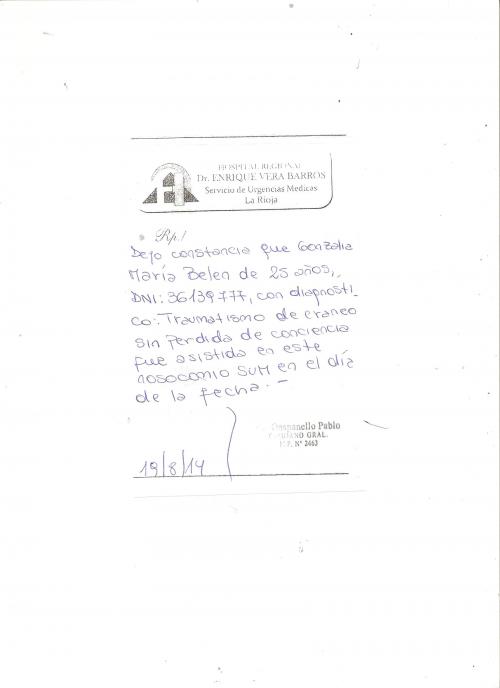 HOSPITAL REGIONAL
Dr. ENRIQUE VERA BARROS
Servicio de Urgencias Medicas
La Rioja
Rp./
Dejo constancia que Gonzalia
María Belen de 25 años,
DNI: 36139777, con diagnosti
co: Traumatismo de craneo
sin perdida de conciencia
fue asistida en este
nosocomio SUM en el día
de la fecha. -
Pablo
GRAL.
N° 2463
19/8/14